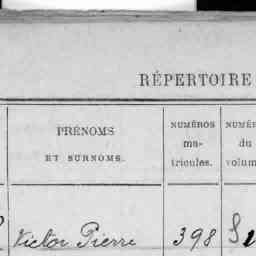 RÉPERTOIRE
PRÉNOMS
ET SURNOMS.
NUMÉROS
ma-
tricules.
NUMÉR
du
volum
Victor Pierre
398